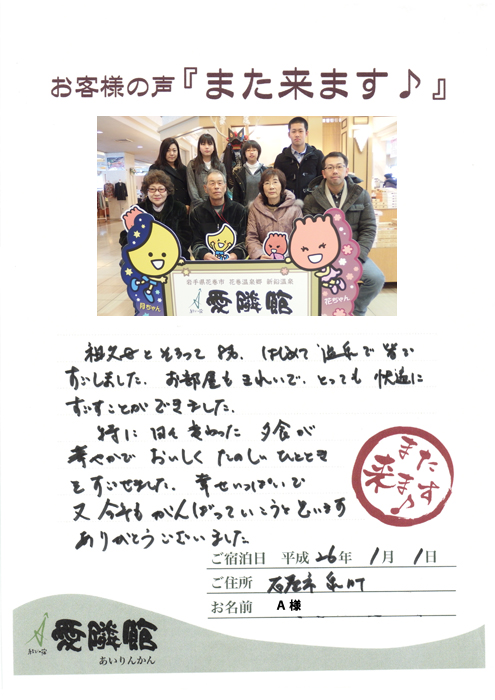 お客様の声『また来ます♪』
月ちゃん
岩手県花巻市 花巻温泉郷 新鉛温泉
愛隣館
花ちゃん
祖父母とそろって8名、はじめて温泉で皆で
すごしました。お部屋もきれいで、とっても快適に
すごすことができました。
特に 変わった 夕食が
華やかで おいしく たのしいひととき
をすごせました。幸せいっぱいで
又 今年もがんばっていこうと思います
ありがとうございました
また
来ます♪
ご宿泊日 平成 26年 1月 1日
ご住所
お名前 A 様
愛隣館
あいりんかん